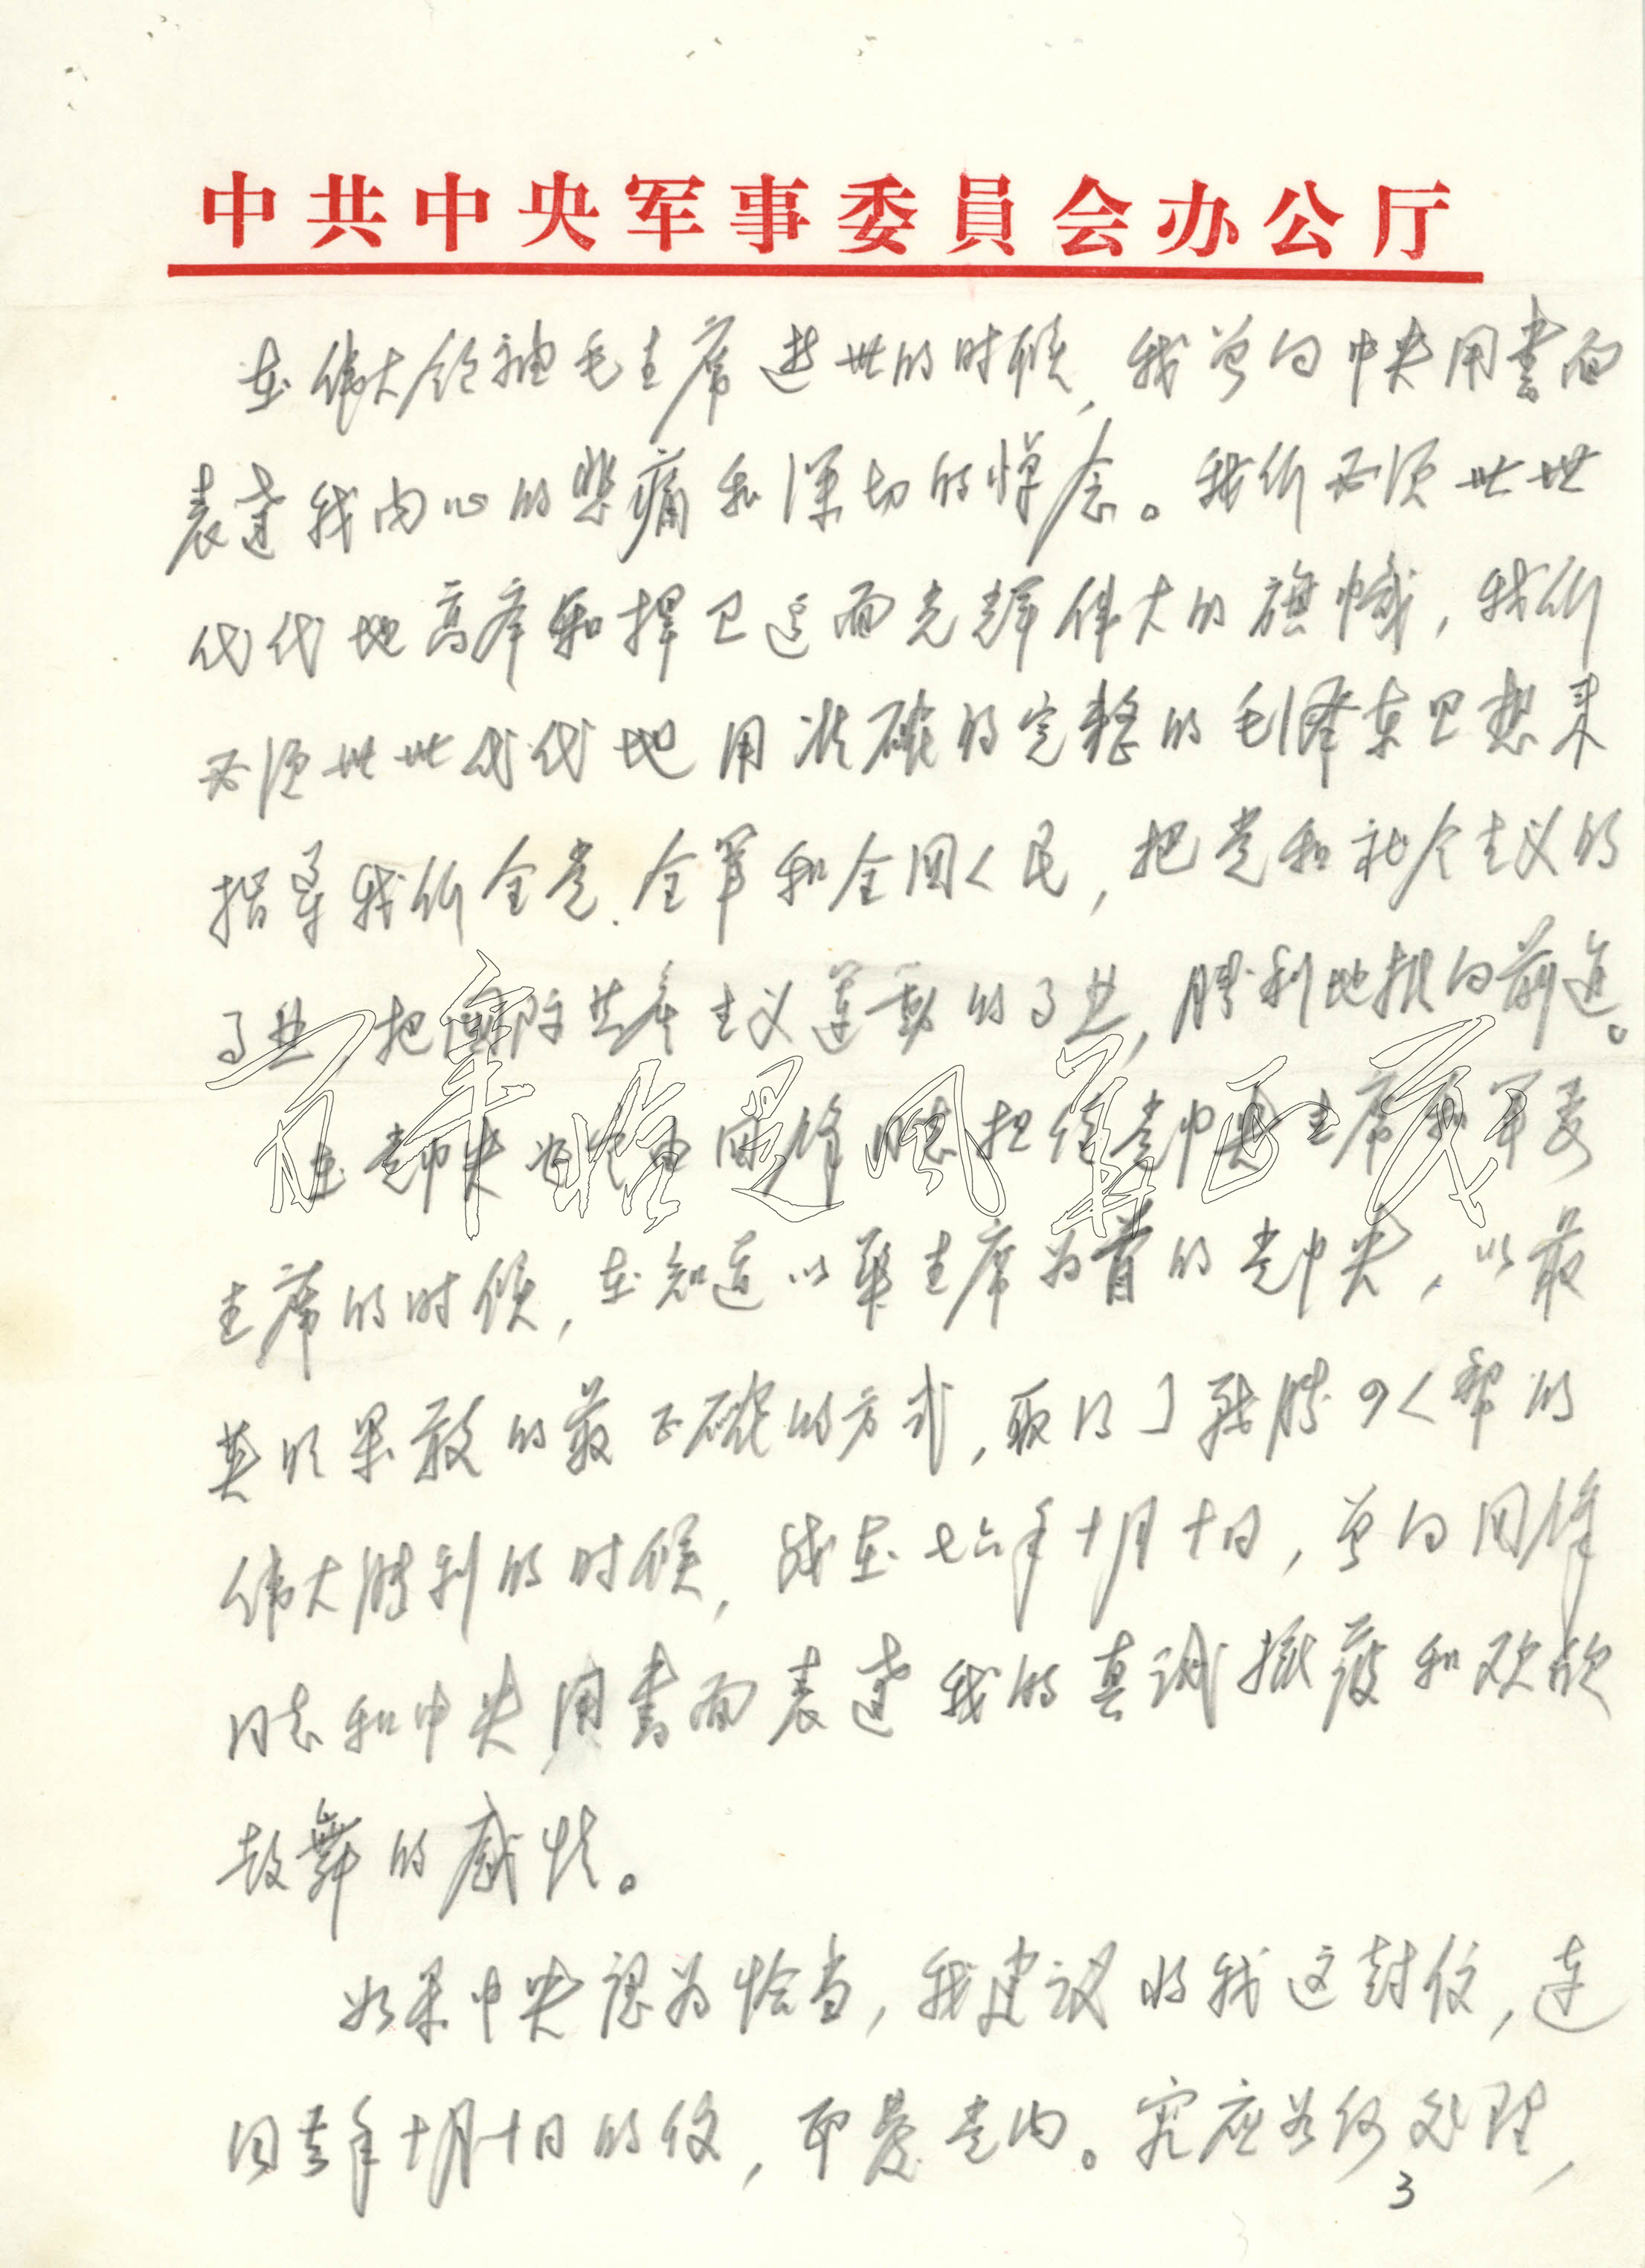 中共中央军事委員会办公厅
在伟大领袖毛主席逝世的时候，我曾向中央用書面
表达我内心的悲痛和深切的悼念。我们必须世世
代代地高举和捍卫这面光辉伟大的旗帜，我们
必须世世代代地用准确的完整的毛泽东思想来
指导我们全党、全军和全国人民，把党和社会主义的
事业，把国际共产主义運動的事业，勝利地推向前进。
在党中央决定由国锋同志担任党中央主席和军委
主席的时候，在知道以華主席为首的党中央，以最
英明果敢的最正確的方式，取得了战勝四人帮的
伟大勝利的时候，我在七六年十月十日，曾向国锋
同志和中央用書面表达我的真诚擁護和欢欣
鼓舞的感情。
如果中央認为恰当，我建议将我这封信，连
同去年十月十日的信，印發党内。究应如何处理，
百年恰是風華正茂
3